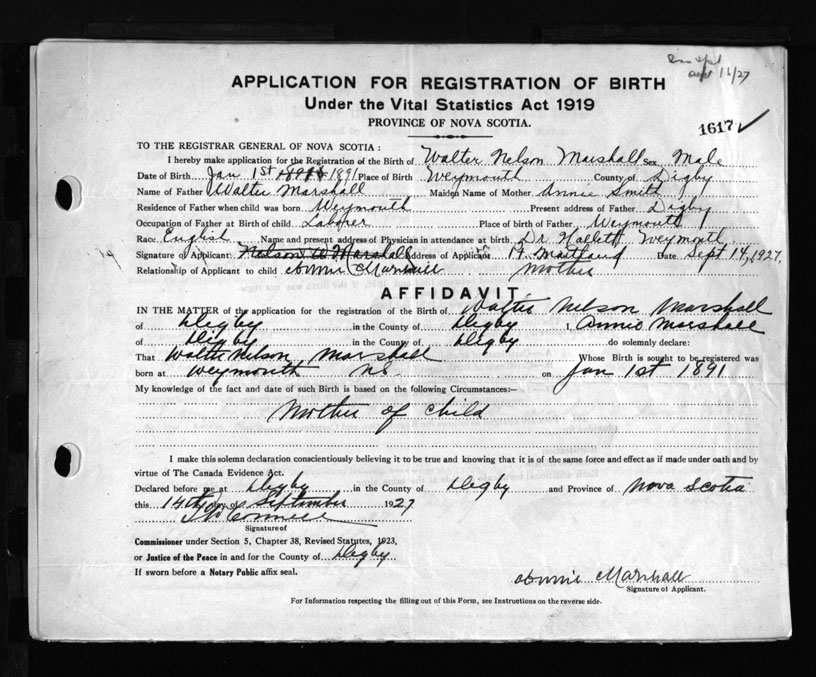 Sept 16/27
APPLICATION FOR REGISTRATION OF BIRTH
Under the Vital Statistics Act 1919
PROVINCE OF NOVA SCOTIA.
1617 ✓
TO THE REGISTRAR GENERAL OF NOVA SCOTIA :
I hereby make application for the Registration of the Birth of Walter Nelson Marshall Sex Male
Date of Birth Jan 1st 1891 Place of Birth Weymouth County of Digby
Name of Father Walter Marshall Maiden Name of Mother Annie Smith
Residence of Father when child was born Weymouth Present address of Father Digby
Occupation of Father at Birth of child Laborer Place of birth of Father Weymouth
Race English Name and present address of Physician in attendance at birth Dr. Hallett Weymouth
Signature of Applicant Nelson W Marshall Address of Applicant Maitland Date Sept 14, 1927.
Relationship of Applicant to child Annie Marshall Mother
AFFIDAVIT
IN THE MATTER of the application for the registration of the Birth of Walter Nelson Marshall
of Digby in the County of Digby I, Annie Marshall
of Digby in the County of Digby do solemnly declare:
That Walter Nelson Marshall Whose Birth is sought to be registered was
born at Weymouth NS on Jan 1st 1891
My knowledge of the fact and date of such Birth is based on the following Circumstances:—
Mother of Child
I make this solemn declaration conscientiously believing it to be true and knowing that it is of the same force and effect as if made under oath and by
virtue of The Canada Evidence Act.
Declared before me at Digby in the County of Digby and Province of Nova Scotia
this 14th day of September 1927
Signature of
Commissioner under Section 5, Chapter 38, Revised Statutes, 1923,
or Justice of the Peace in and for the County of Digby
If sworn before a Notary Public affix seal.
Annie Marshall
Signature of Applicant.
For Information respecting the filling out of this Form, see Instructions on the reverse side.